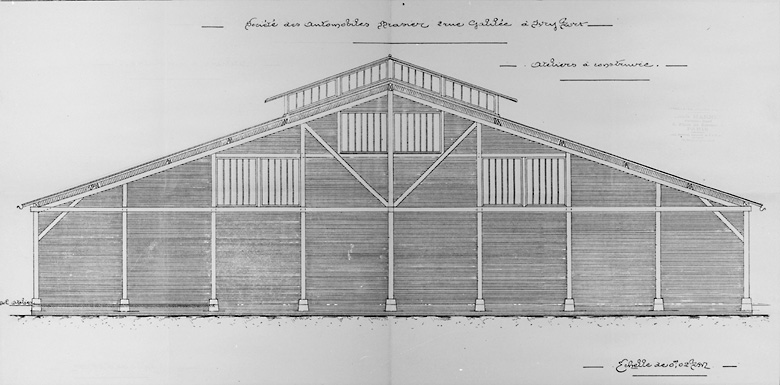 Société des Automobiles Brasier 2 rue Galilée à Ivry Port
Ateliers à construire.
Echelle de 0,02